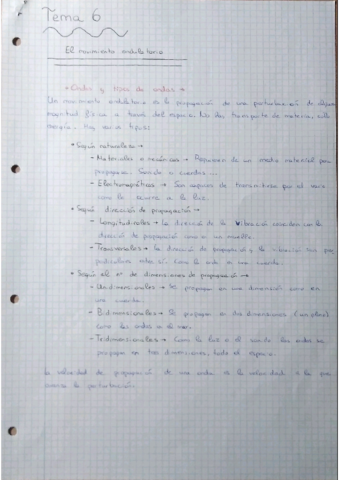 Tema 6
El movimiento ondulatorio
• Ondas y tipos de ondas →
Un movimiento ondulatorio es la propagación de una perturbación de alguna
magnitud física a través del espacio. No hay transporte de materia, sólo
energía. Hay varios tipos:
• Según naturaleza →
- Materiales o mecánicas → Requieren de un medio material para
propagarse. Sonido o cuerdas...
- Electromagnéticas → Son capaces de transmitirse por el vacío
como la luz.
• Según dirección de propagación →
- Longitudinales → La dirección de la vibración coincide con la
dirección de propagación como en un muelle.
- Transversales → La dirección de propagación y la vibración son per
pendiculares entre sí. Como la onda en una cuerda.
• Según el nº de dimensiones de propagación →
- Unidimensionales → Se propagan en una dimensión como en
una cuerda.
- Bidimensionales → Se propagan en dos dimensiones, (un plano)
como las ondas en el mar.
- Tridimensionales → Como la luz o el sonido las ondas se
propagan en tres dimensiones, todo el espacio.
La velocidad de propagación de una onda es la velocidad a la que
avanza la perturbación.